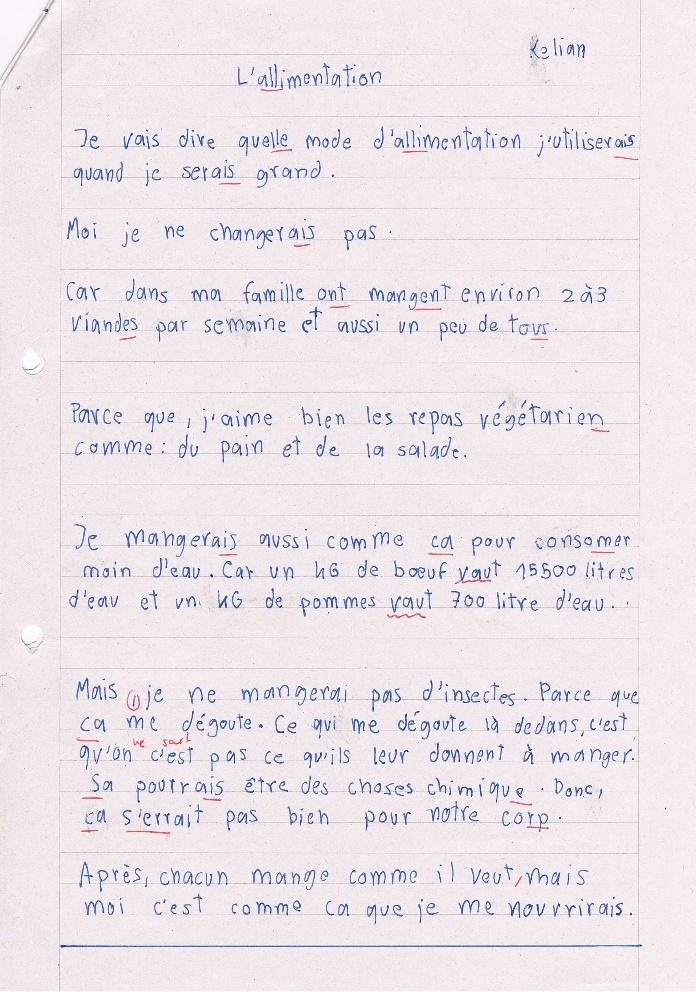 Kelian
L'allimentation
Je vais dire quelle mode d'allimentation j'utiliserais
quand je serais grand.
Moi je ne changerais pas.
Car dans ma famille ont mangent environ 2 à 3
viandes par semaine et aussi un peu de tous.
Parce que, j'aime bien les repas végétarien
comme: du pain et de la salade.
Je mangerais aussi comme ca pour consomer
moin d'eau. Car un KG de bœuf vaut 15500 litres
d'eau et un KG de pommes vaut 700 litre d'eau..
Mais , je ne mangerai pas d'insectes. Parce que
ca me dégoute. Ce qui me dégoute là dedans, c'est
ne sait
qu'on c'est pas ce qu'ils leur donnent à manger.
Sa pourrais être des choses chimique. Donc,
ca s'errait pas bien pour notre corp.
Après, chacun mange comme il veut, mais
moi c'est comme ca que je me nouvrirais.